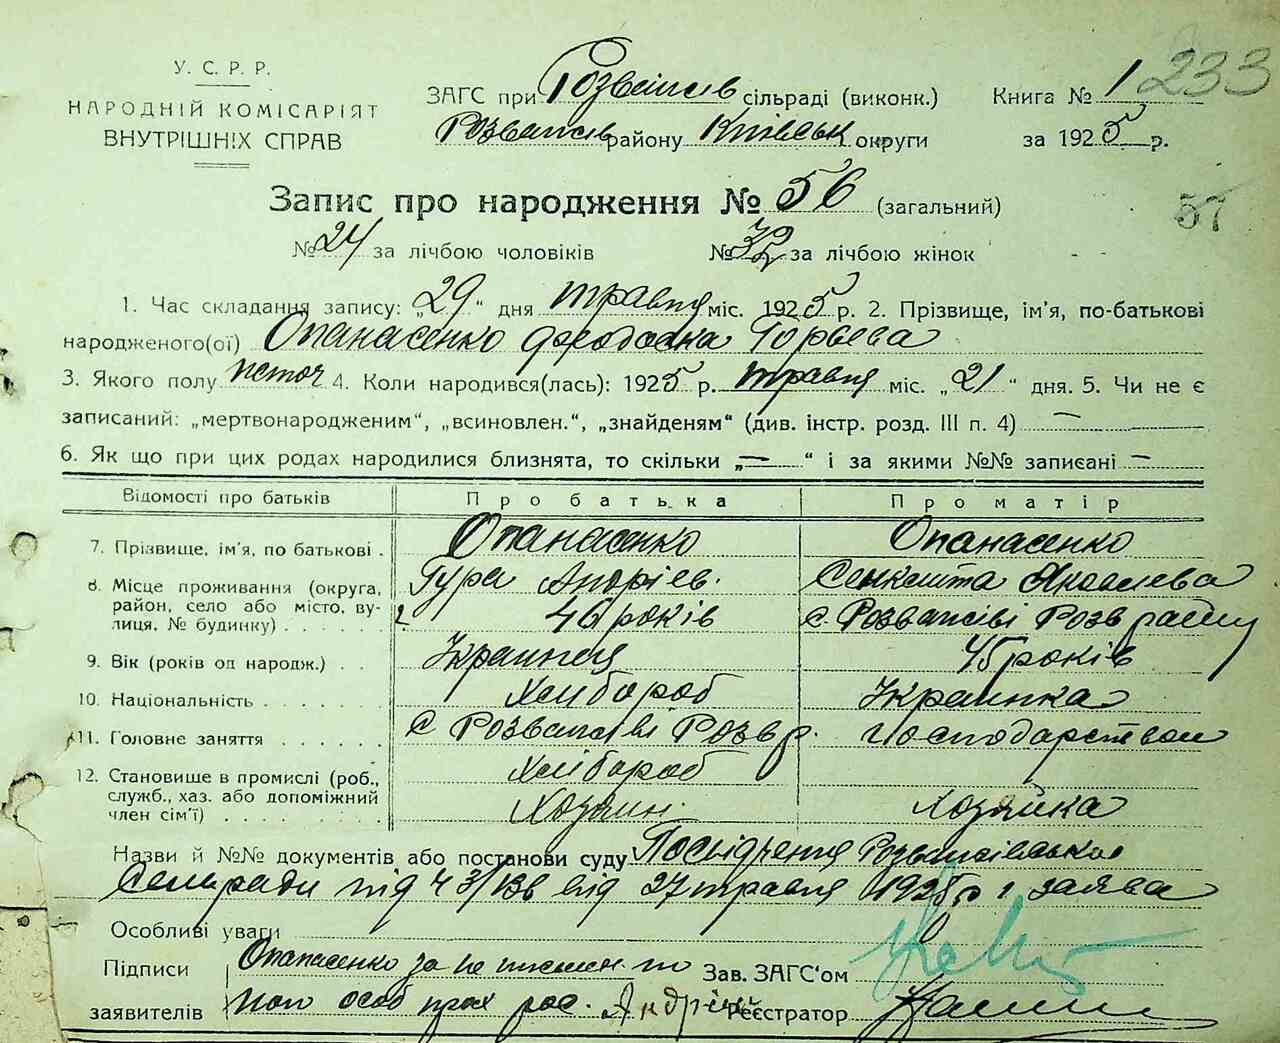 У. С. Р. Р.
НАРОДНІЙ КОМІСАРІЯТ
ВНУТРІШНІХ СПРАВ
ЗАГС при Розважів сільраді (виконк.)
Розважів району Київськ округи
Книга № 1 233
за 1925 р.
Запис про народження № 56 (загальний)
57
№ 24 за лічбою чоловіків № 32 за лічбою жінок
1. Час складання запису: „29“ дня травня міс. 1925 р. 2. Прізвище, ім'я, по-батькові
народженого(ої) Опанасенко Феодосна Горьева
3. Якого полу 4. Коли народився(лась): 1925 р. травня міс. „21“ дня. 5. Чи не є
записаний: „мертвонародженим“, „всиновлен.“, „знайденям“ (див. інстр. розд. III п. 4) —
6. Як що при цих родах народилися близнята, то скільки „—“ і за якими №№ записані —
Відомості про батьків Про батька Про матір
7. Прізвище, ім'я, по батькові . Опанасенко Опанасенко
Гура Андріев. Яковлева
8. Місце проживання (округа,
район, село або місто, ву-
лиця, № будинку) . . . . .
46 років с. Розважів Розв району
9. Вік (років од народж.) . . Украинец 45 років
10. Національність . . . . . . Хлибороб Украинка
11. Головне заняття . . . . . . с Розважів Розв р. Господарством
12. Становище в промислі (роб.,
служб., хаз. або допоміжний
член сім'ї) . . . . . . . .
Хлибороб
Хозяин. Хозяйка
Назви й №№ документів або постанови суду Посвідчення Розважівської
Сельради під Ч 43/138 від 27 травня 1925 р і заява
Особливі уваги
Підписи
заявителів
Опанасенко за не письмен.
Зав. ЗАГС'ом
Реєстратор